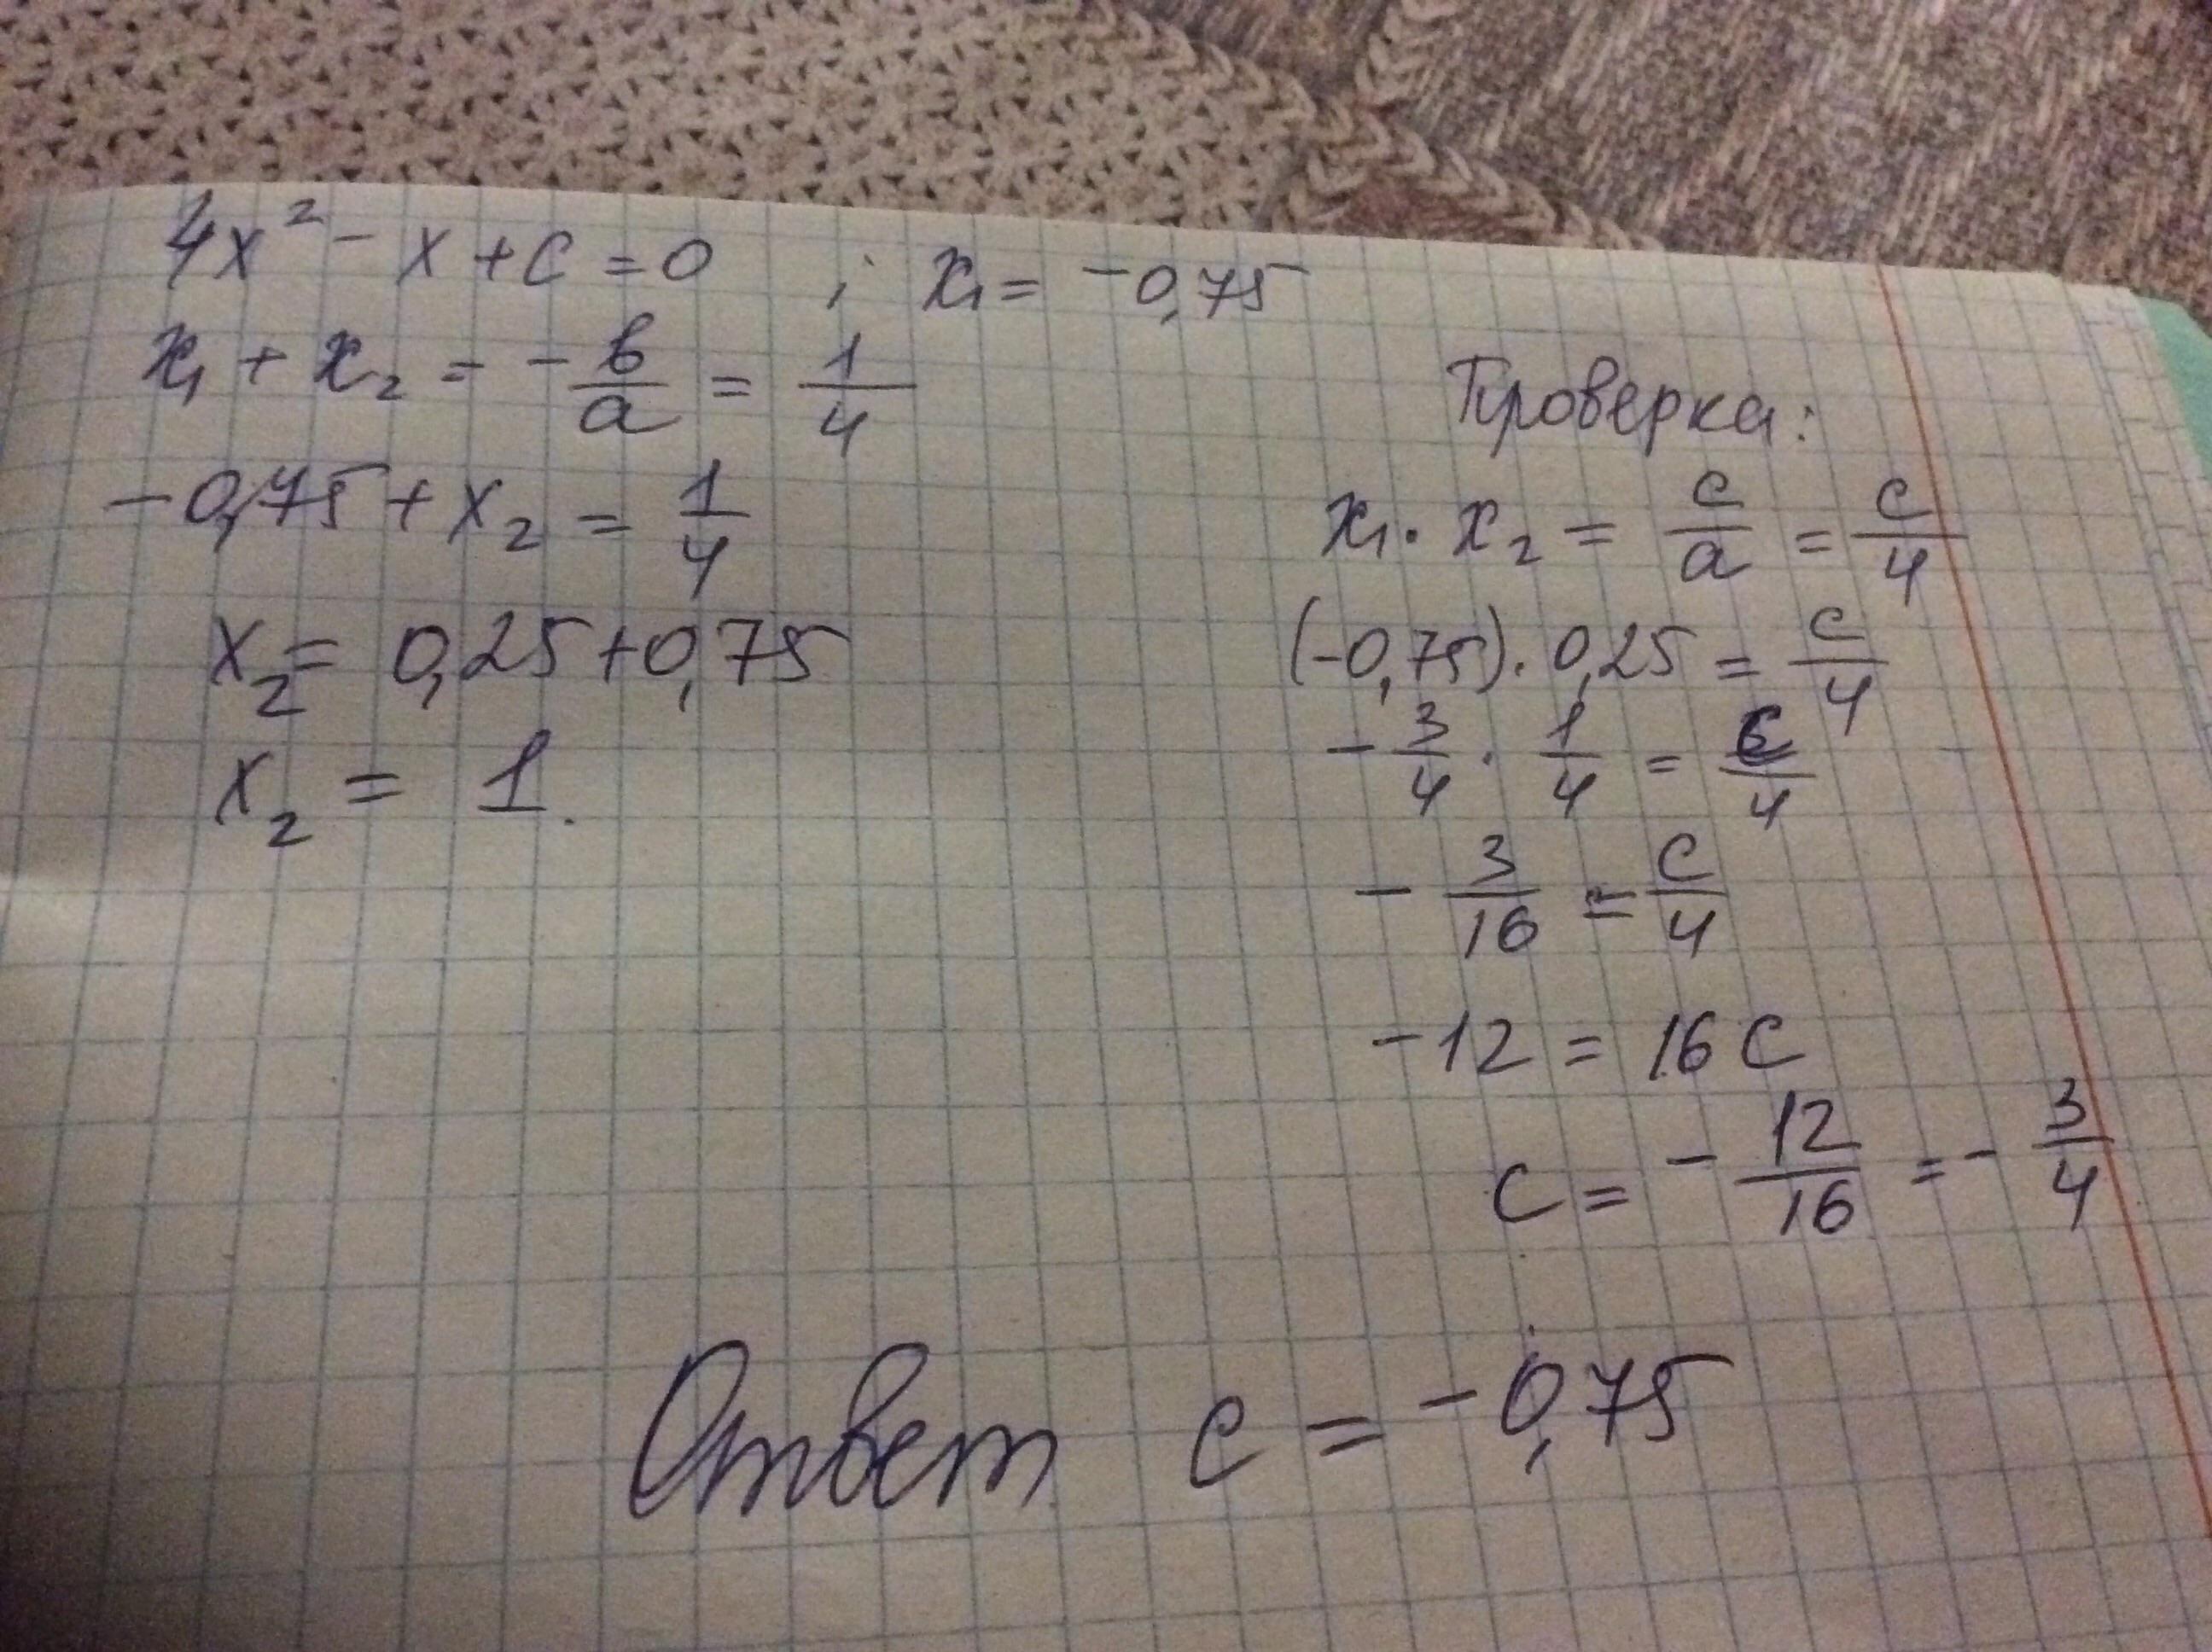 4x² - x + c = 0 ; x₁ = -0,75
x₁ + x₂ = -в/а = 1/4
-0,75 + x₂ = 1/4
x₂ = 0,25 + 0,75
x₂ = 1.
Проверка:
x₁ · x₂ = c/a = c/4
(-0,75) · 0,25 = c/4
- 3/4 · 1/4 = c/4
- 3/16 = c/4
-12 = 16 c
c = - 12/16 = - 3/4
Ответ c = -0,75